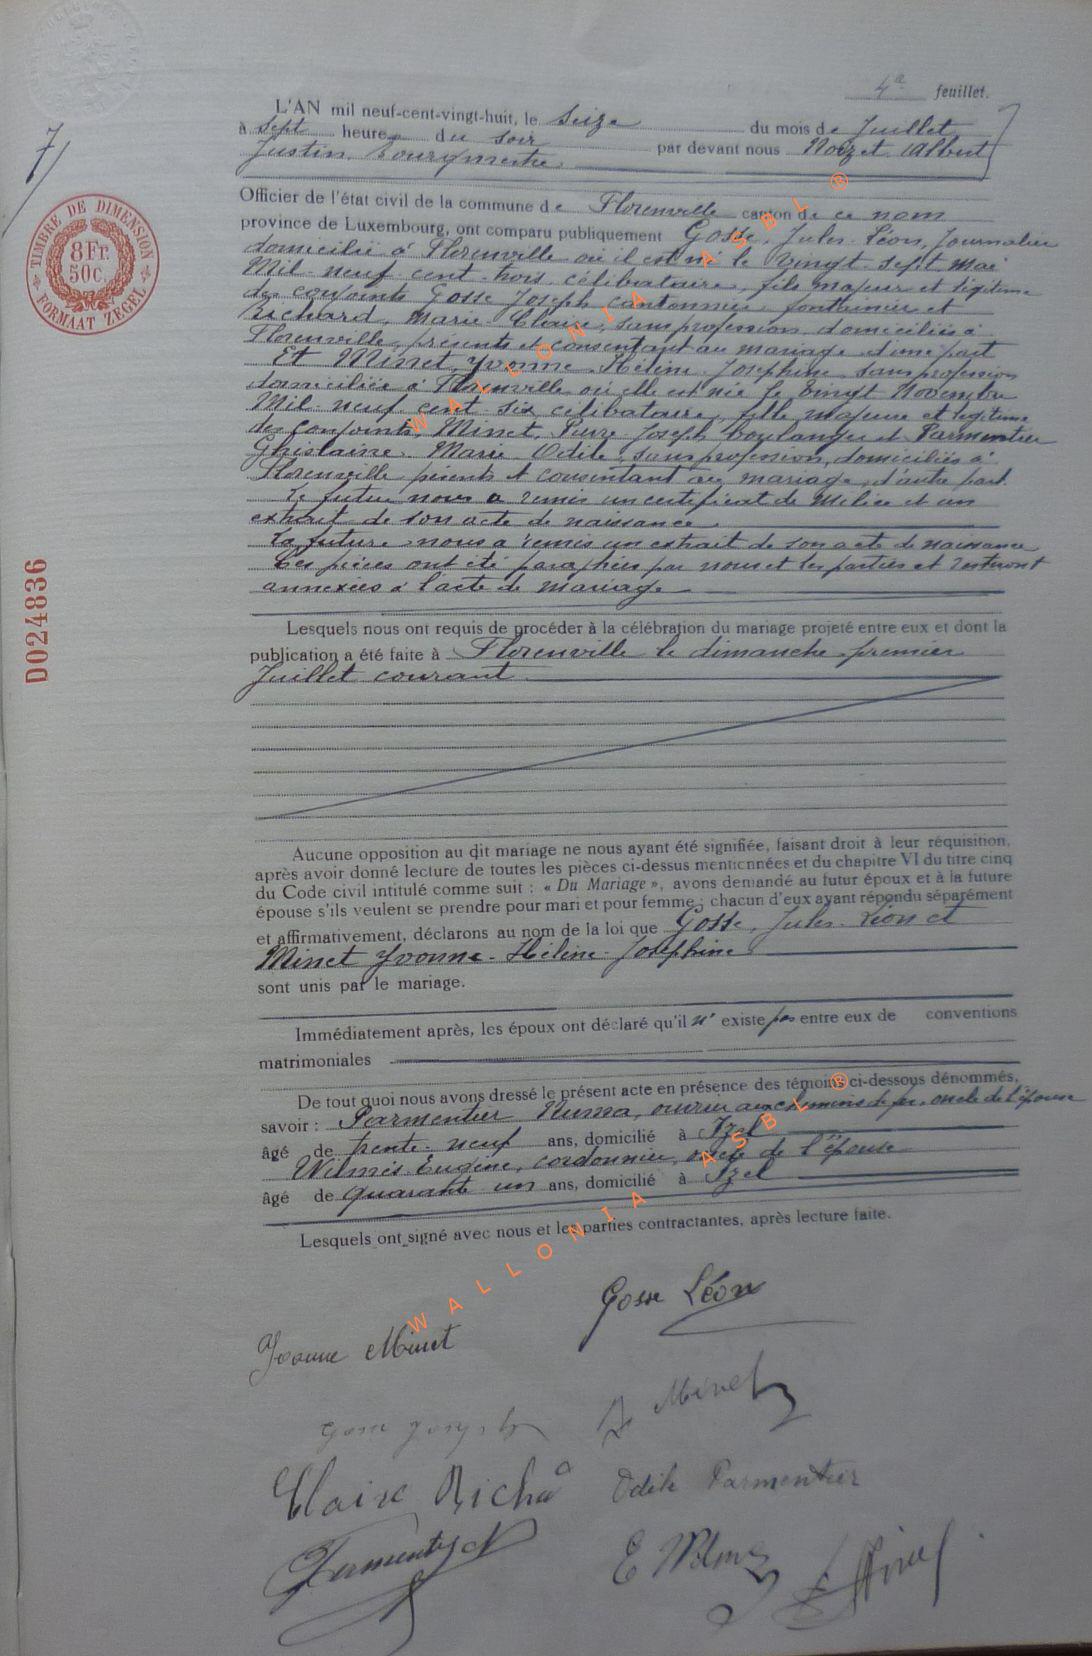 4e feuillet.
7
L'AN mil neuf-cent-vingt-huit, le Seize du mois de Juillet
à sept heures du soir par devant nous Noizet Albert
Justin, Bourgmestre
TIMBRE DE DIMENSION
8Fr.
50C.
FORMAAT ZEGEL
D024836
Officier de l'état civil de la commune de Florenville canton de ce nom
province de Luxembourg, ont comparu publiquement Gosse, Jules-Léon, Journalier
domicilié à Florenville où il est né le vingt-sept mai
Mil-neuf cent-trois, célibataire, fils majeur et légitime
des conjoints Gosse Joseph cantonnier-fontainier et
Richard, Marie-Claire, sans profession, domiciliés à
Florenville, présents et consentant au mariage, d'une part
Et Minet, Yvonne-Hélène-Joséphine sans profession
domiciliée à Florenville où elle est née le vingt Novembre
Mil-neuf cent-six célibataire, fille majeure et légitime
des conjoints, Minet, Pierre-Joseph boulanger et Parmentier
Ghislaine-Marie-Odile, sans profession, domiciliés à
Florenville présents et consentant au mariage, d'autre part.
Le futur nous a remis un certificat de Milice et un
extrait de son acte de naissance
La future nous a remis un extrait de son acte de naissance
Ces pièces ont été paraphées par nous et les parties et resteront
annexées à l'acte de mariage
Lesquels nous ont requis de procéder à la célébration du mariage projeté entre eux et dont la
publication a été faite à Florenville le dimanche-premier
Juillet courant
Aucune opposition au dit mariage ne nous ayant été signifiée, faisant droit à leur réquisition,
après avoir donné lecture de toutes les pièces ci-dessus mentionnées et du chapitre VI du titre cinq
du Code civil intitulé comme suit : « Du Mariage », avons demandé au futur époux et à la future
épouse s'ils veulent se prendre pour mari et pour femme ; chacun d'eux ayant répondu séparément
et affirmativement, déclarons au nom de la loi que Gosse, Jules-Léon et
Minet Yvonne-Hélène-Joséphine
sont unis par le mariage.
Immédiatement après, les époux ont déclaré qu'il n'existe pas entre eux de conventions
matrimoniales
De tout quoi nous avons dressé le présent acte en présence des témoins ci-dessous dénommés,
savoir : Parmentier Numa, ouvrier aux chemins de fer, oncle de l'épouse
âgé de trente-neuf ans, domicilié à Izel
Wilmes Eugène, cordonnier, oncle de l'épouse
âgé de quarante un ans, domicilié à Izel
Lesquels ont signé avec nous et les parties contractantes, après lecture faite.
Gosse Léon
Yvonne Minet
Gosse Joseph
Minet
Claire Richa
Odile Parmentier
Parmentier N
E Wilmes
WALLONIA ASBL ®
WALLONIA ASBL ®